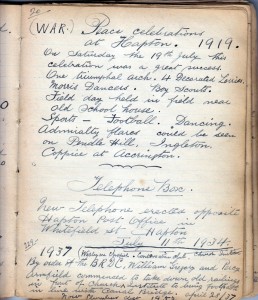 20.
(WAR.) Peace celebrations
at Hapton. 1919.
On Saturday the 19th July this
celebration was a great success.
One triumphal arch. 4 Decorated Lorries.
Morris Dancers. Boy Scouts.
Field day held in field near
old School.
Sports — Football. Dancing.
Admiralty flares could be seen
on Pendle Hill, Ingleton
Coppice at Accrington.
Telephone Box.
New Telephone erected opposite
Hapton Post Office in
Whitefield St Hapton
July 11th 1934.
1937
By order of the B.R.D.C. William and Percy
commenced to take down old railings
in front of Institute to bring footpath
in line with April 20/37